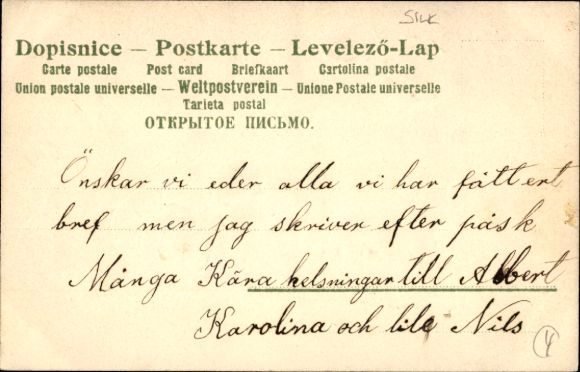 SILK
Dopisnice – Postkarte – Levelező-Lap
Carte postale Post card Briefkaart Cartolina postale
Union postale universelle – Weltpostverein – Unione Postale universelle
Tarieta postal
ОТКРЫТОЕ ПИСЬМО.
Önskar vi eder alla vi har fått ert
bref men jag skriver efter påsk
Många Kära helsningar till Albert
Karolina och lile Nils
4